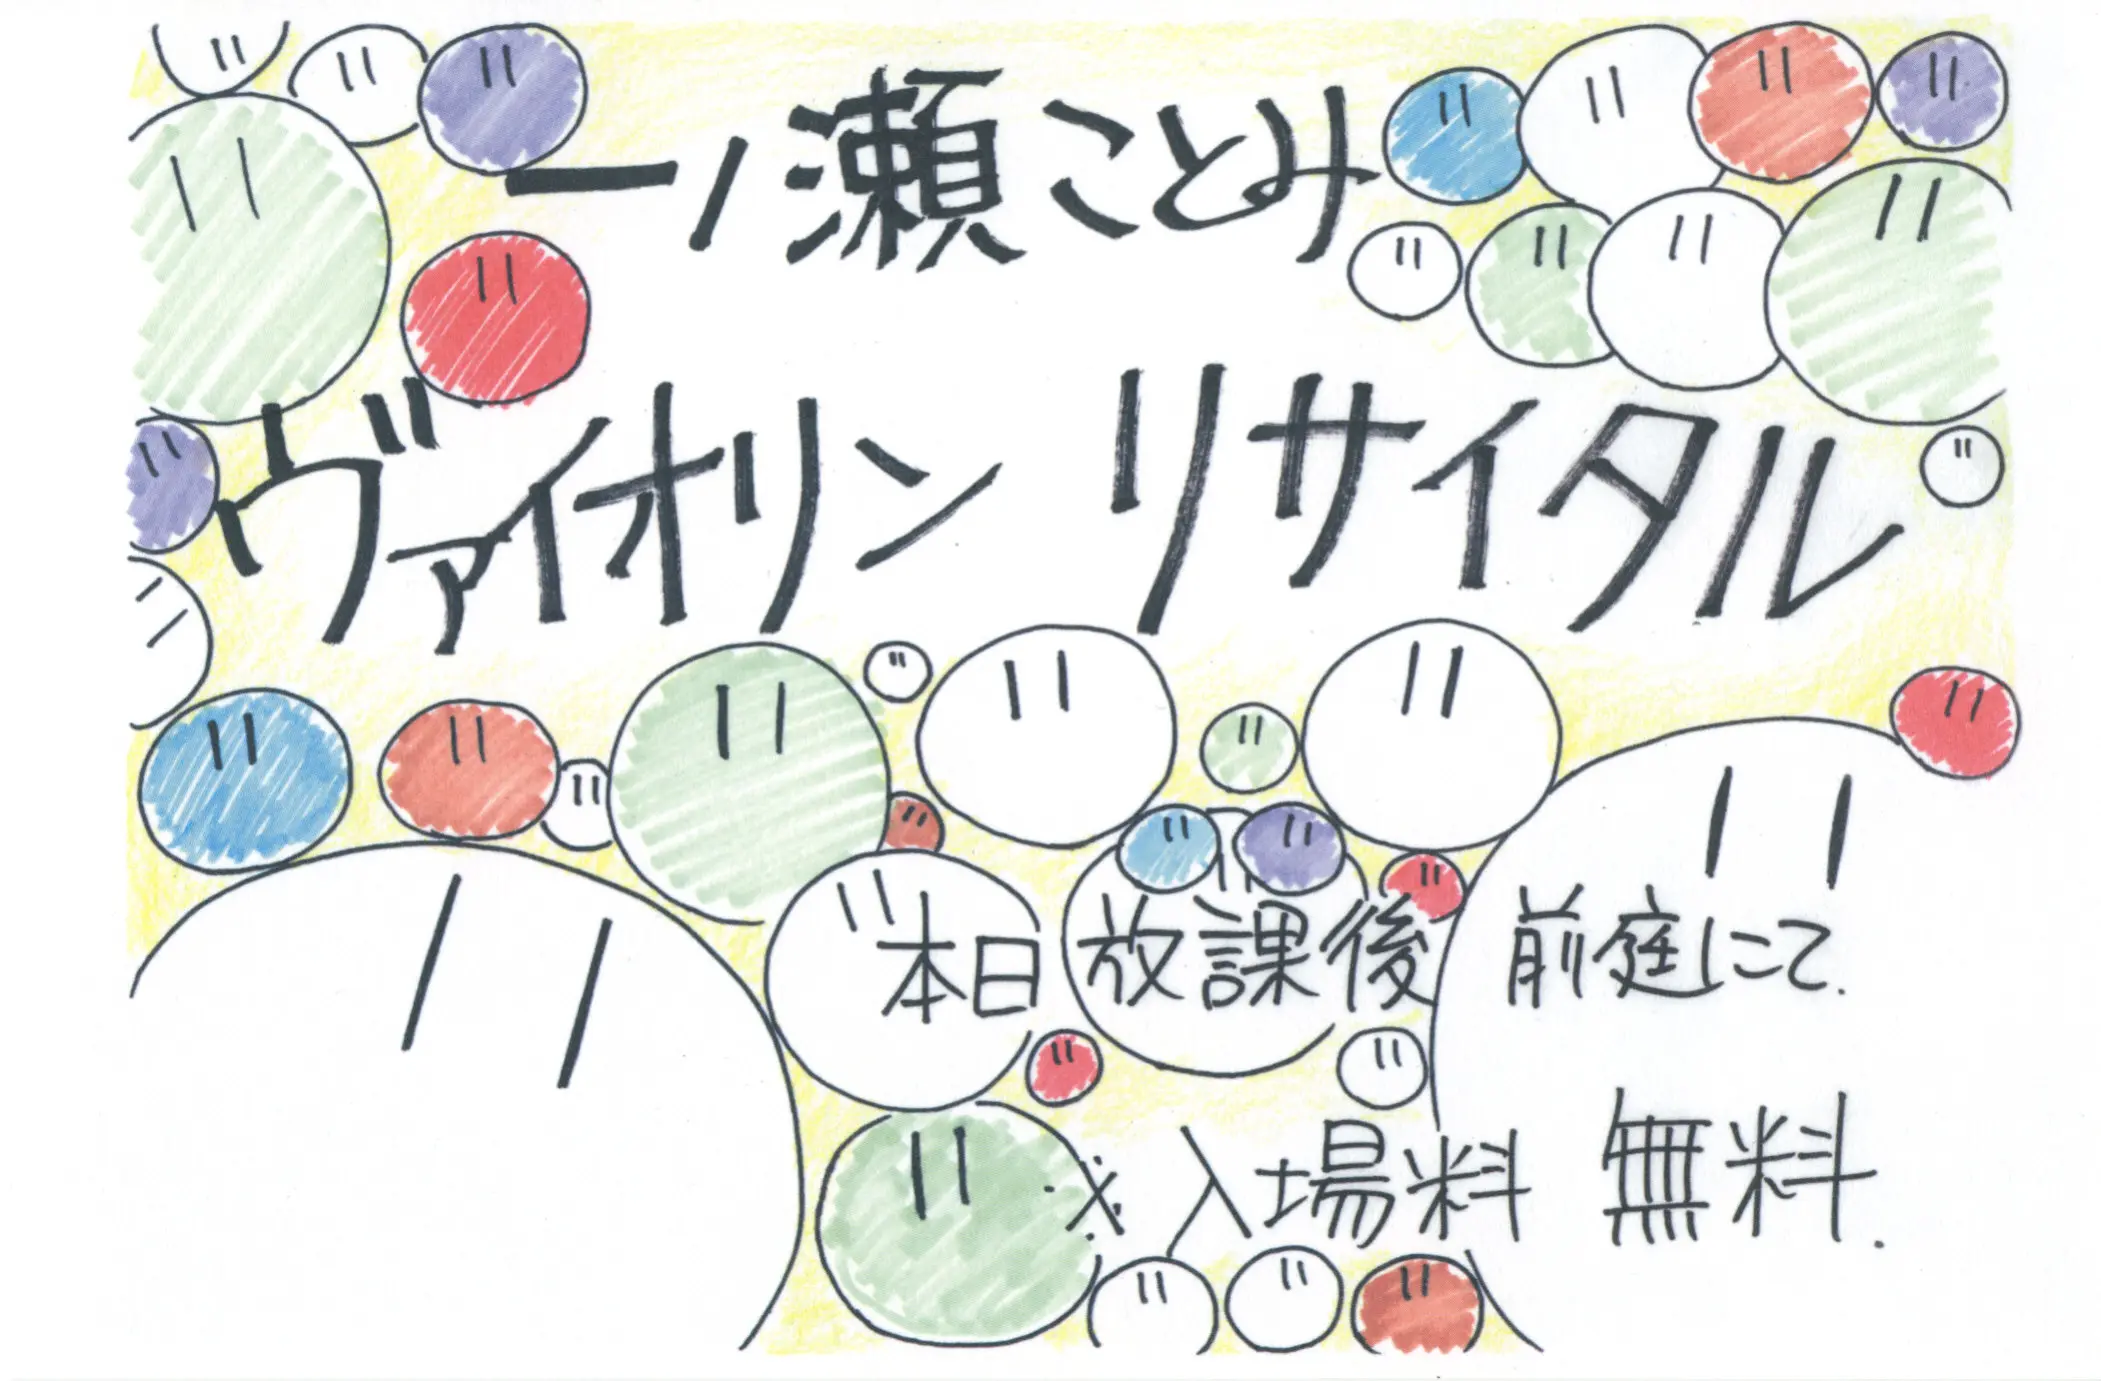 一ノ瀬ことみ
ヴァイオリン リサイタル
本日 放課後 前庭にて.
※入場料 無料.